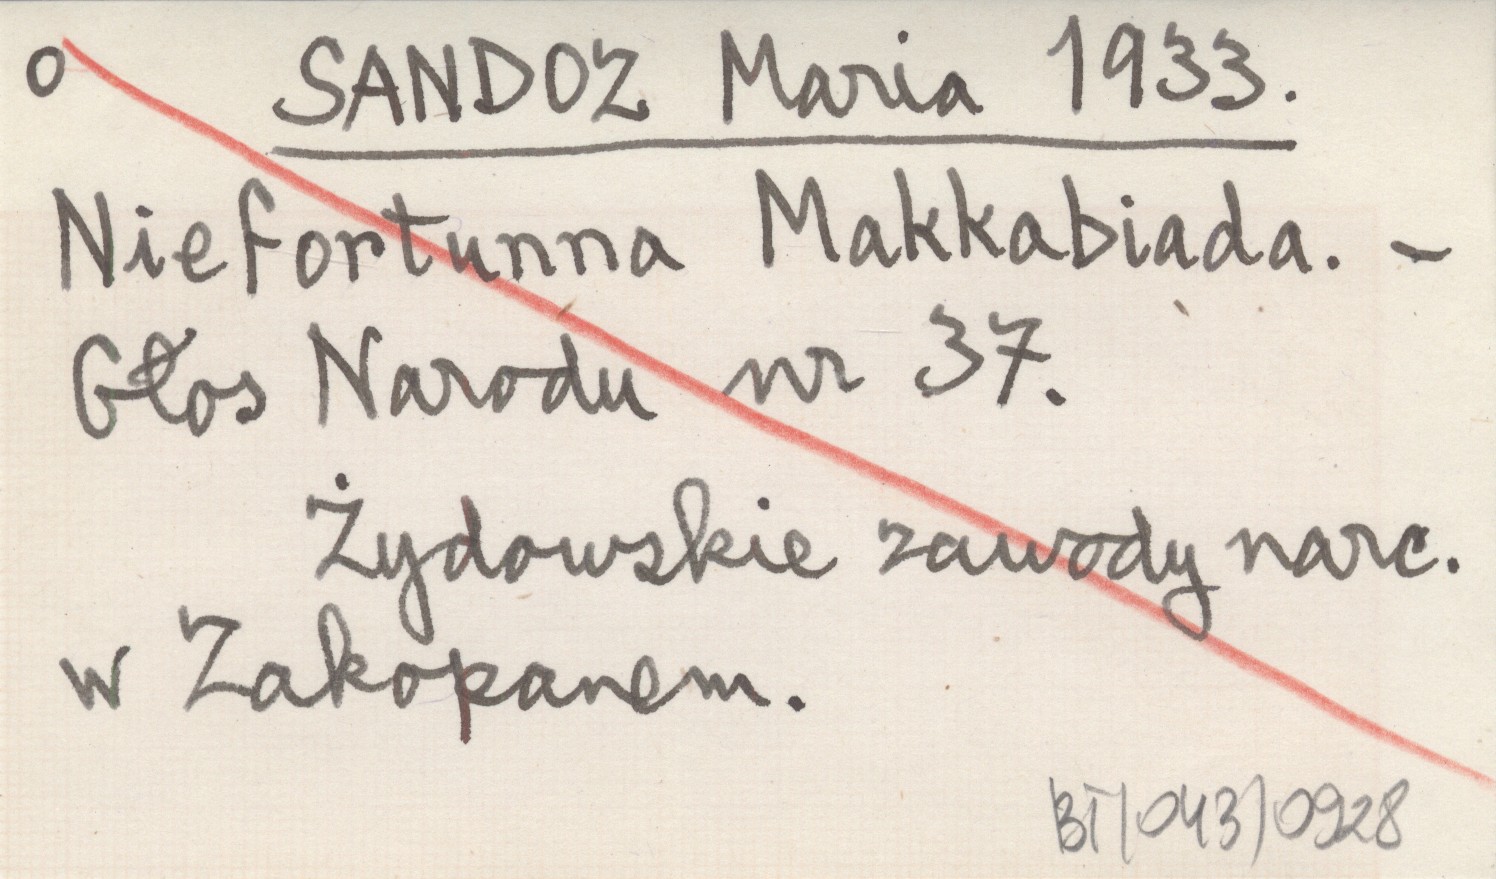 o SANDOZ Maria 1933.
Niefortunna Makkabiada. -
Głos Narodu nr 37.
Żydowskie zawody narc.
w Zakopanem.
BT/043/0928